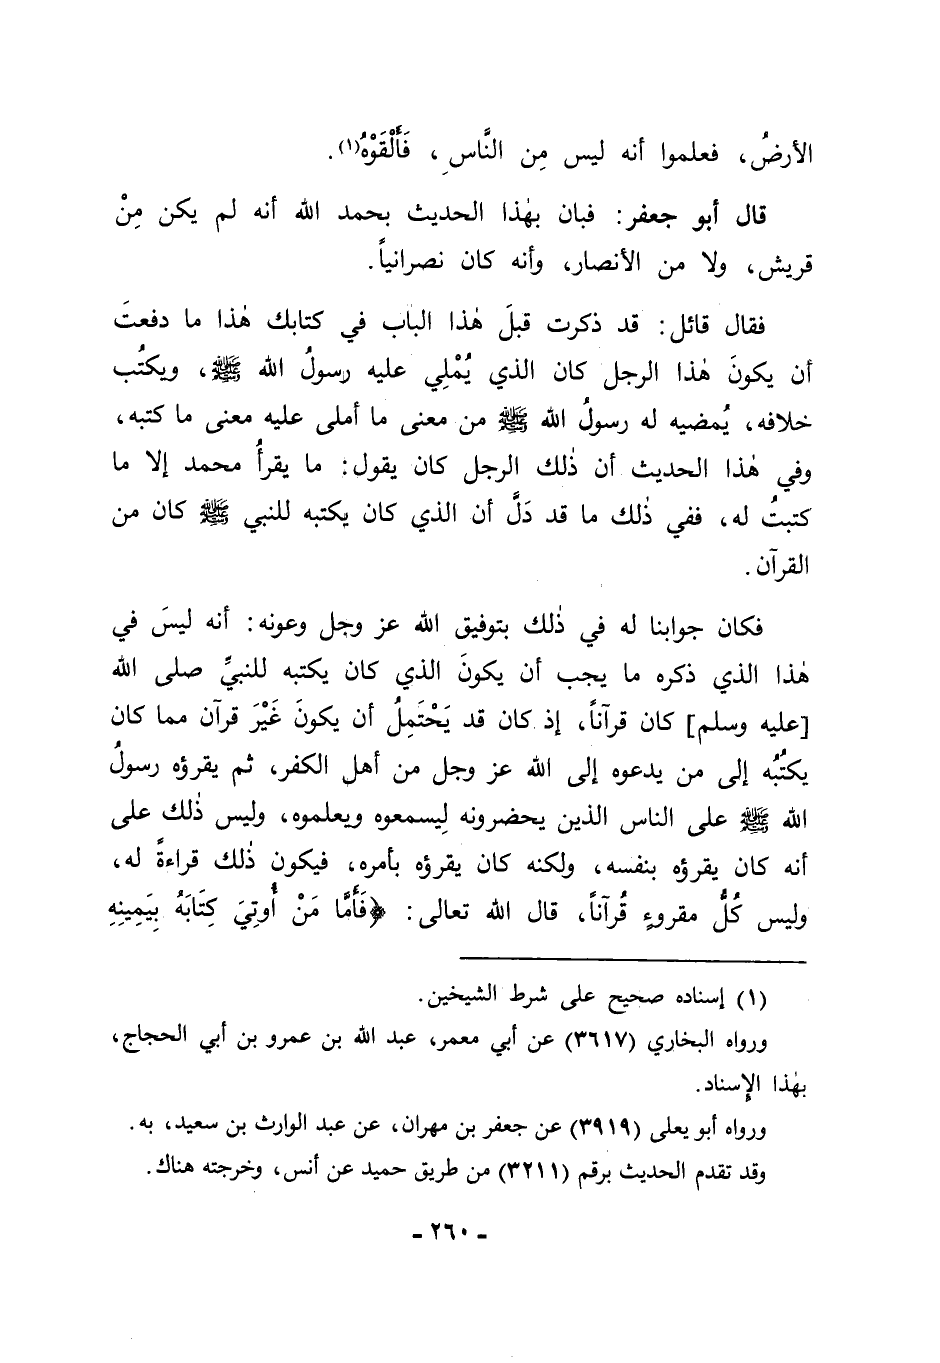 الأرضُ، فعلموا أنه ليس مِن النَّاسِ، فَأَلْقَوْهُ(١).
قال أبو جعفر: فبان بهٰذا الحديث بحمد الله أنه لم يكن مِنْ
قريش، ولا من الأنصار، وأنه كان نصرانياً.
فقال قائل: قد ذكرت قبلَ هٰذا الباب في كتابك هٰذا ما دفعتَ
أن يكونَ هٰذا الرجل كان الذي يُمْلِي عليه رسولُ الله ﷺ، ويكتُب
خلافه، يُمضيه له رسولُ الله ﷺ من معنى ما أملى عليه معنى ما كتبه،
وفي هٰذا الحديث أن ذٰلك الرجل كان يقول: ما يقرأُ محمد إلا ما
كتبتُ له، ففي ذٰلك ما قد دَلَّ أن الذي كان يكتبه للنبي ﷺ كان من
القرآن.
فكان جوابنا له في ذٰلك بتوفيق الله عز وجل وعونه: أنه ليسَ في
هٰذا الذي ذكره ما يجب أن يكونَ الذي كان يكتبه للنبيِّ صلى الله
[عليه وسلم] كان قرآناً، إذ كان قد يَحْتَمِلُ أن يكونَ غَيْرَ قرآن مما كان
يكتُبُه إلى من يدعوه إلى الله عز وجل من أهل الكفر، ثم يقرؤه رسولُ
الله ﷺ على الناس الذين يحضرونه لِيسمعوه ويعلموه، وليس ذٰلك على
أنه كان يقرؤه بنفسه، ولكنه كان يقرؤه بأمره، فيكون ذٰلك قراءةً له،
وليس كُلُّ مقروءٍ قُرآناً، قال الله تعالى: ﴿فَأَمَّا مَنْ أُوتِيَ كِتَابَهُ بِيَمِينِهِ
(١) إسناده صحيح على شرط الشيخين.
ورواه البخاري (٣٦١٧) عن أبي معمر، عبد الله بن عمرو بن أبي الحجاج،
بهٰذا الإسناد.
ورواه أبو يعلى (٣٩١٩) عن جعفر بن مهران، عن عبد الوارث بن سعيد، به.
وقد تقدم الحديث برقم (٣٢١١) من طريق حميد عن أنس، وخرجته هناك.
- ٢٦٠ -